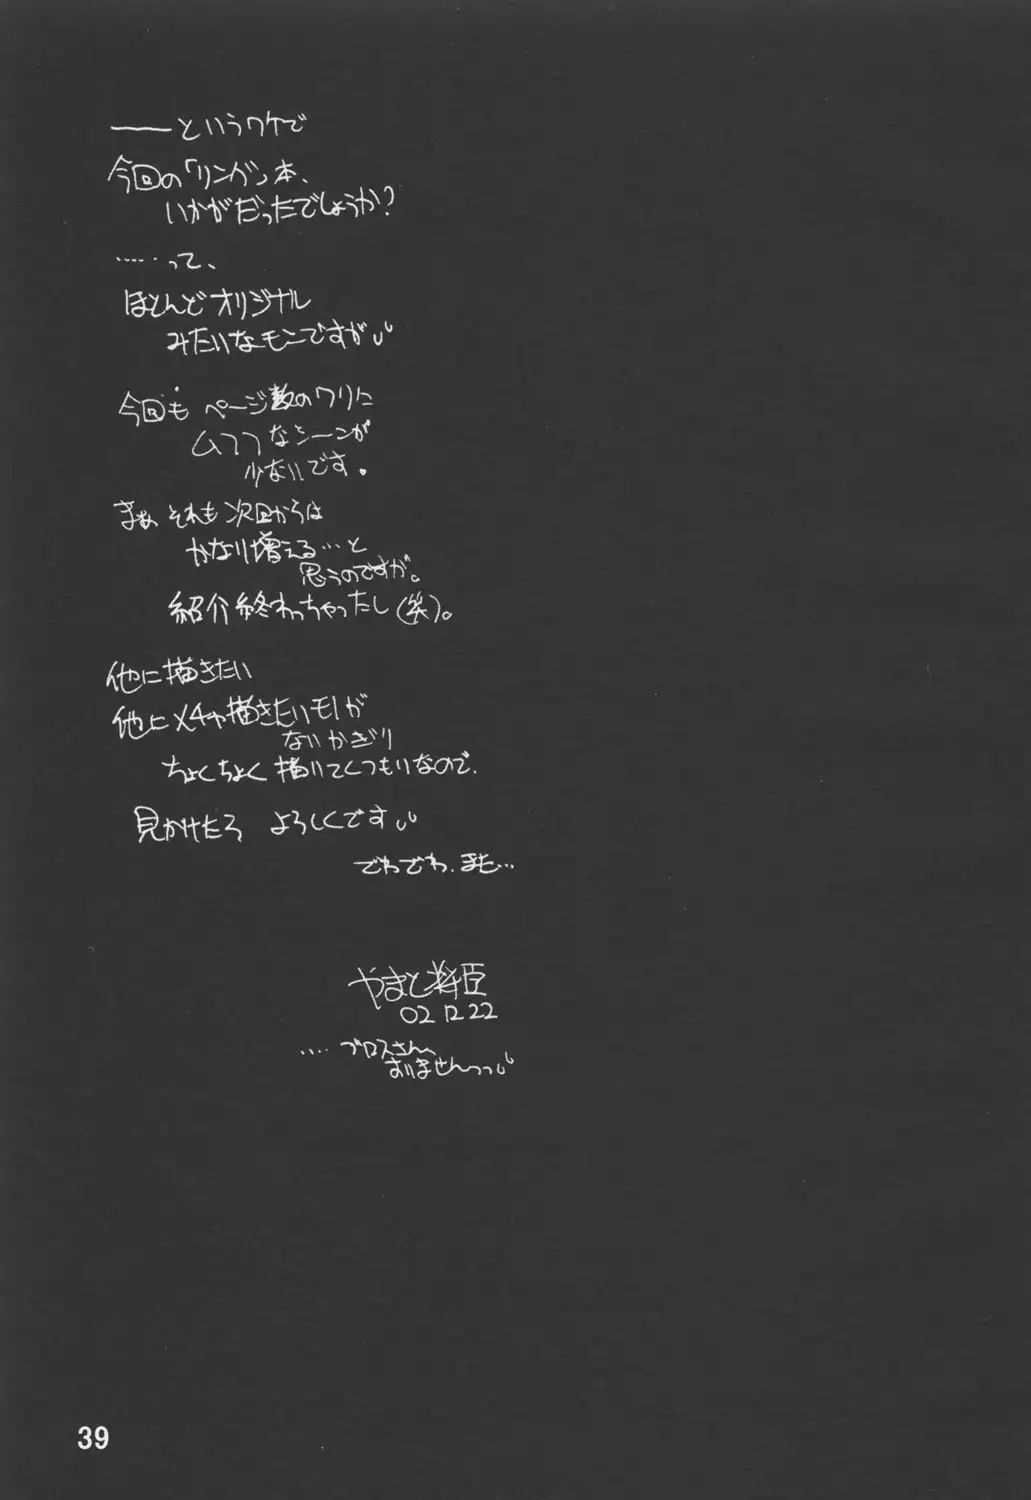 ――というワケで
今回の「リンガ」本、
いかがだったでしょうか？
……って、
ほとんどオリジナル
みたいなモンですが
今回も ページ数のワリに
ムフフなシーンが
少ないです。
まぁ それも次回からは
かなり増える…と
思うのですが。
紹介終わっちゃったし(笑)。
他に描きたい
他にメチャ描きたいモノが
ないかぎり
ちょくちょく描いてくつもりなので、
見かけたら よろしくです
でわでわ、また…
やまと
02 12 22
…. ブロスさん、
すいませんっっ
39